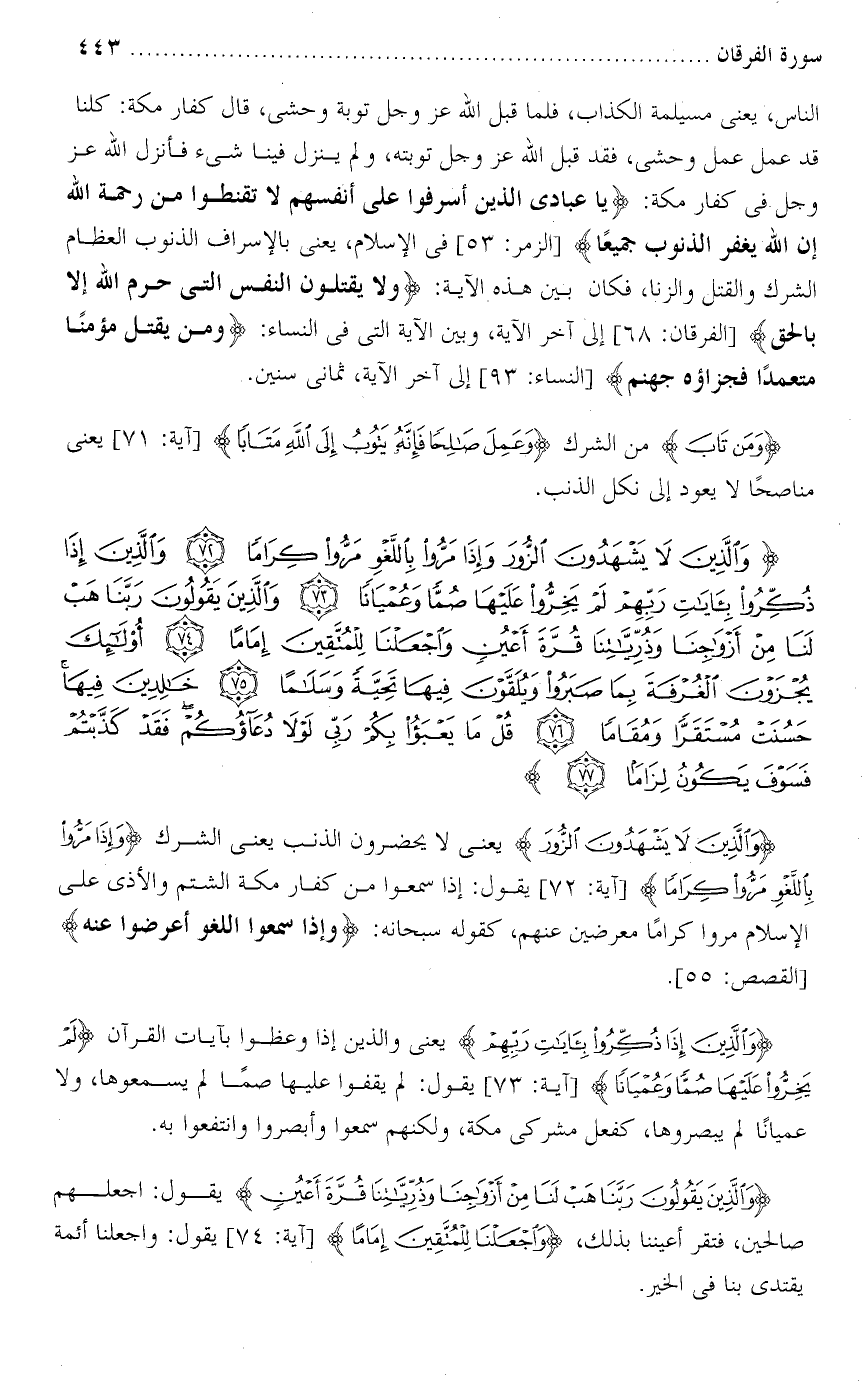 سورة الفرقان ........................................................................ ٤٤٣
الناس، يعنى مسيلمة الكذاب، فلما قبل الله عز وجل توبة وحشى، قال كفار مكة: كلنا
قد عمل عمل وحشى، فقد قبل الله عز وجل توبته، ولم ينزل فينا شىء فأنزل الله عز
وجل فى كفار مكة: ﴿يا عبادى الذين أسرفوا على أنفسهم لا تقنطوا من رحمة الله
إن الله يغفر الذنوب جميعًا﴾ [الزمر: ٥٣] فى الإسلام، يعنى بالإسراف الذنوب العظام
الشرك والقتل والزنا، فكان بين هذه الآية: ﴿ولا يقتلون النفس التى حرم الله إلا
بالحق﴾ [الفرقان: ٦٨] إلى آخر الآية، وبين الآية التى فى النساء: ﴿ومن يقتل مؤمنًا
متعمدًا فجزاؤه جهنم﴾ [النساء: ٩٣] إلى آخر الآية، ثمانى سنين.
﴿وَمَن تَابَ﴾ من الشرك ﴿وَعَمِلَ صَٰلِحًا فَإِنَّهُۥ يَتُوبُ إِلَى ٱللَّهِ مَتَابًا﴾ [آية: ٧١] يعنى
مناصحًا لا يعود إلى نكل الذنب.
﴿وَٱلَّذِينَ لَا يَشْهَدُونَ ٱلزُّورَ وَإِذَا مَرُّوا۟ بِٱللَّغْوِ مَرُّوا۟ كِرَامًا ٧٢ وَٱلَّذِينَ إِذَا
ذُكِّرُوا۟ بِـَٔايَٰتِ رَبِّهِمْ لَمْ يَخِرُّوا۟ عَلَيْهَا صُمًّا وَعُمْيَانًا ٧٣ وَٱلَّذِينَ يَقُولُونَ رَبَّنَا هَبْ
لَنَا مِنْ أَزْوَٰجِنَا وَذُرِّيَّٰتِنَا قُرَّةَ أَعْيُنٍ وَٱجْعَلْنَا لِلْمُتَّقِينَ إِمَامًا ٧٤ أُو۟لَٰٓئِكَ
يُجْزَوْنَ ٱلْغُرْفَةَ بِمَا صَبَرُوا۟ وَيُلَقَّوْنَ فِيهَا تَحِيَّةً وَسَلَٰمًا ٧٥ خَٰلِدِينَ فِيهَا ۚ
حَسُنَتْ مُسْتَقَرًّا وَمُقَامًا ٧٦ قُلْ مَا يَعْبَؤُا۟ بِكُمْ رَبِّى لَوْلَا دُعَآؤُكُمْ ۖ فَقَدْ كَذَّبْتُمْ
فَسَوْفَ يَكُونُ لِزَامًۢا ٧٧﴾
﴿وَٱلَّذِينَ لَا يَشْهَدُونَ ٱلزُّورَ﴾ يعنى لا يحضرون الذنب يعنى الشرك ﴿وَإِذَا مَرُّوا۟
بِٱللَّغْوِ مَرُّوا۟ كِرَامًا﴾ [آية: ٧٢] يقول: إذا سمعوا من كفار مكة الشتم والأذى على
الإسلام مروا كرامًا معرضين عنهم، كقوله سبحانه: ﴿وإذا سمعوا اللغو أعرضوا عنه﴾
[القصص: ٥٥].
﴿وَٱلَّذِينَ إِذَا ذُكِّرُوا۟ بِـَٔايَٰتِ رَبِّهِمْ﴾ يعنى والذين إذا وعظوا بآيات القرآن ﴿لَمْ
يَخِرُّوا۟ عَلَيْهَا صُمًّا وَعُمْيَانًا﴾ [آية: ٧٣] يقول: لم يقفوا عليها صمًا لم يسمعوها، ولا
عميانًا لم يبصروها، كفعل مشركى مكة، ولكنهم سمعوا وأبصروا وانتفعوا به.
﴿وَٱلَّذِينَ يَقُولُونَ رَبَّنَا هَبْ لَنَا مِنْ أَزْوَٰجِنَا وَذُرِّيَّٰتِنَا قُرَّةَ أَعْيُنٍ﴾ يقول: اجعلهم
صالحين، فتقر أعيننا بذلك، ﴿وَٱجْعَلْنَا لِلْمُتَّقِينَ إِمَامًا﴾ [آية: ٧٤] يقول: واجعلنا أئمة
يقتدى بنا فى الخير.